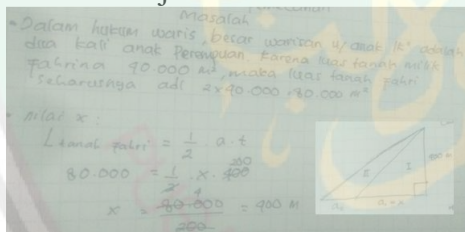 Masalah
• Dalam hukum waris, besar warisan u/ anak lk² adalah
dua kali anak Perempuan. Karena luas tanah milik
Fahrina 40.000 m², maka luas tanah Fahri
seharusnya adl 2x40.000 = 80.000 m²
• Nilai x :
L tanah Fahri = 1/2 . a . t
80.000 = 1/2 . x . 400 200
x = 80.000 / 200 = 400 M
II I
a + x